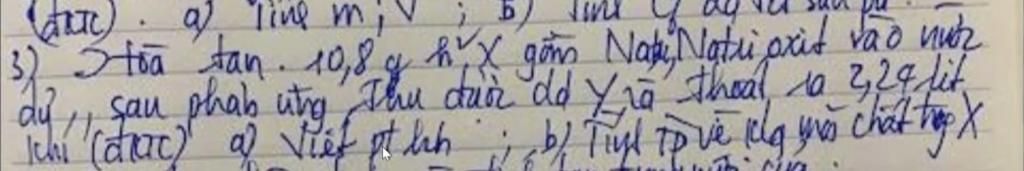 (đktc). a) Tính m, V ; b) Tính
3) Hòa tan 10,8 g h² X gồm Natri, Natri oxit vào nước
dư, sau phản ứng thu được dd Y và thoát ra 2,24 lít
khí (đktc) a) Viết pt hh ; b) Tính TP về klg mỗi chất trg X